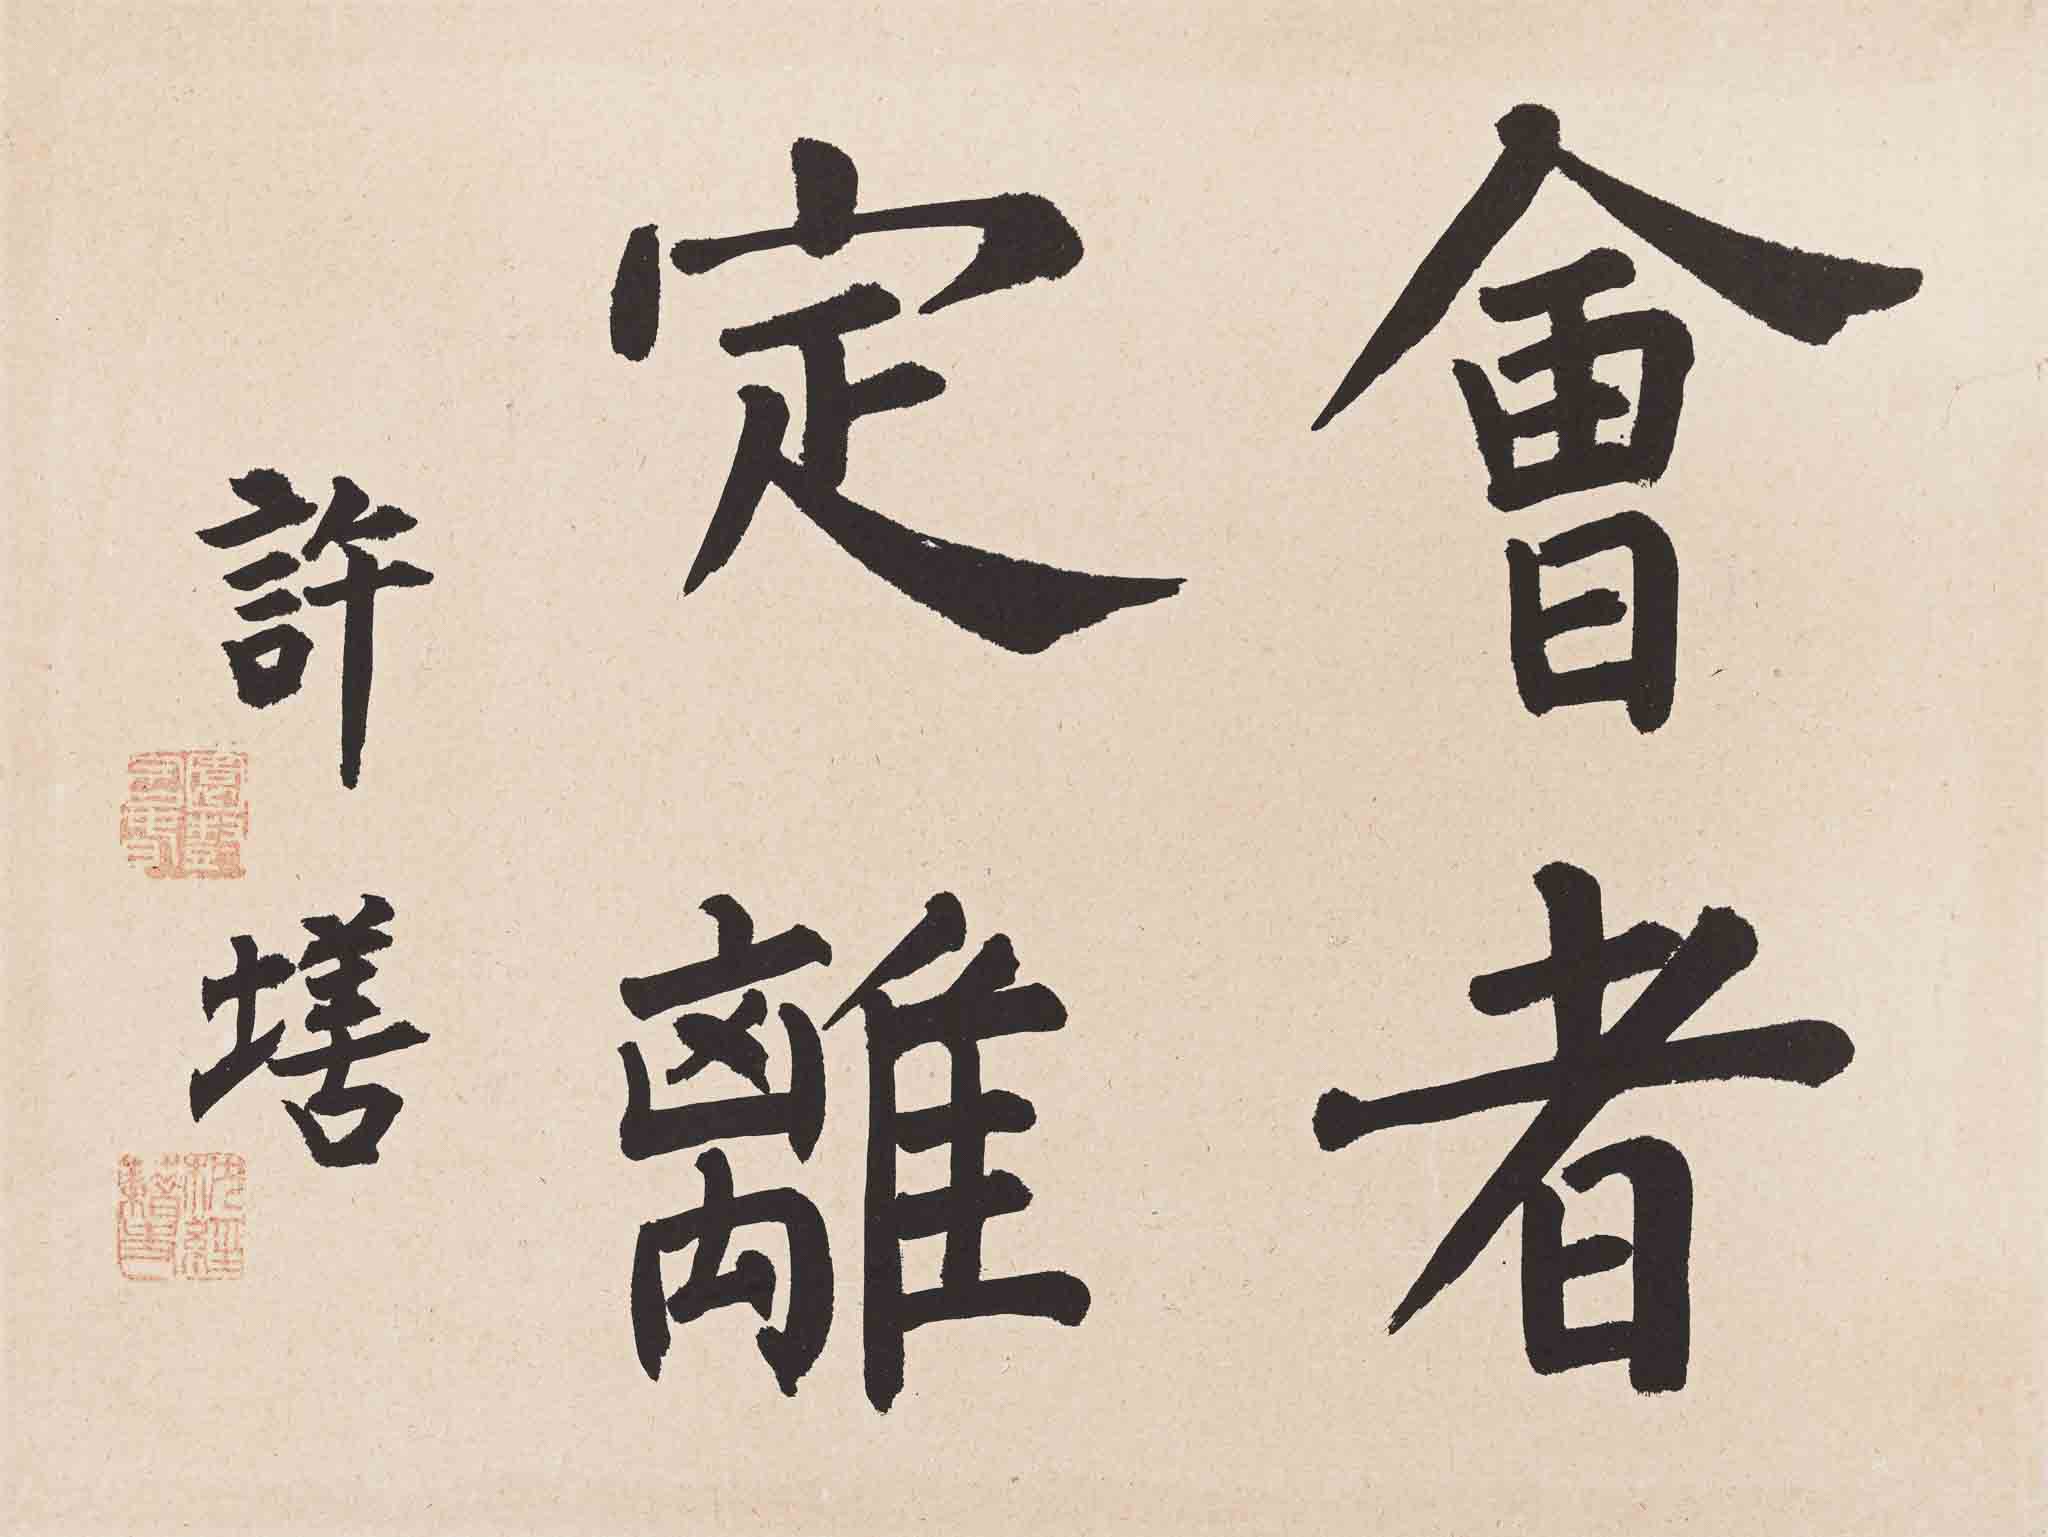 會者
定離
許墡